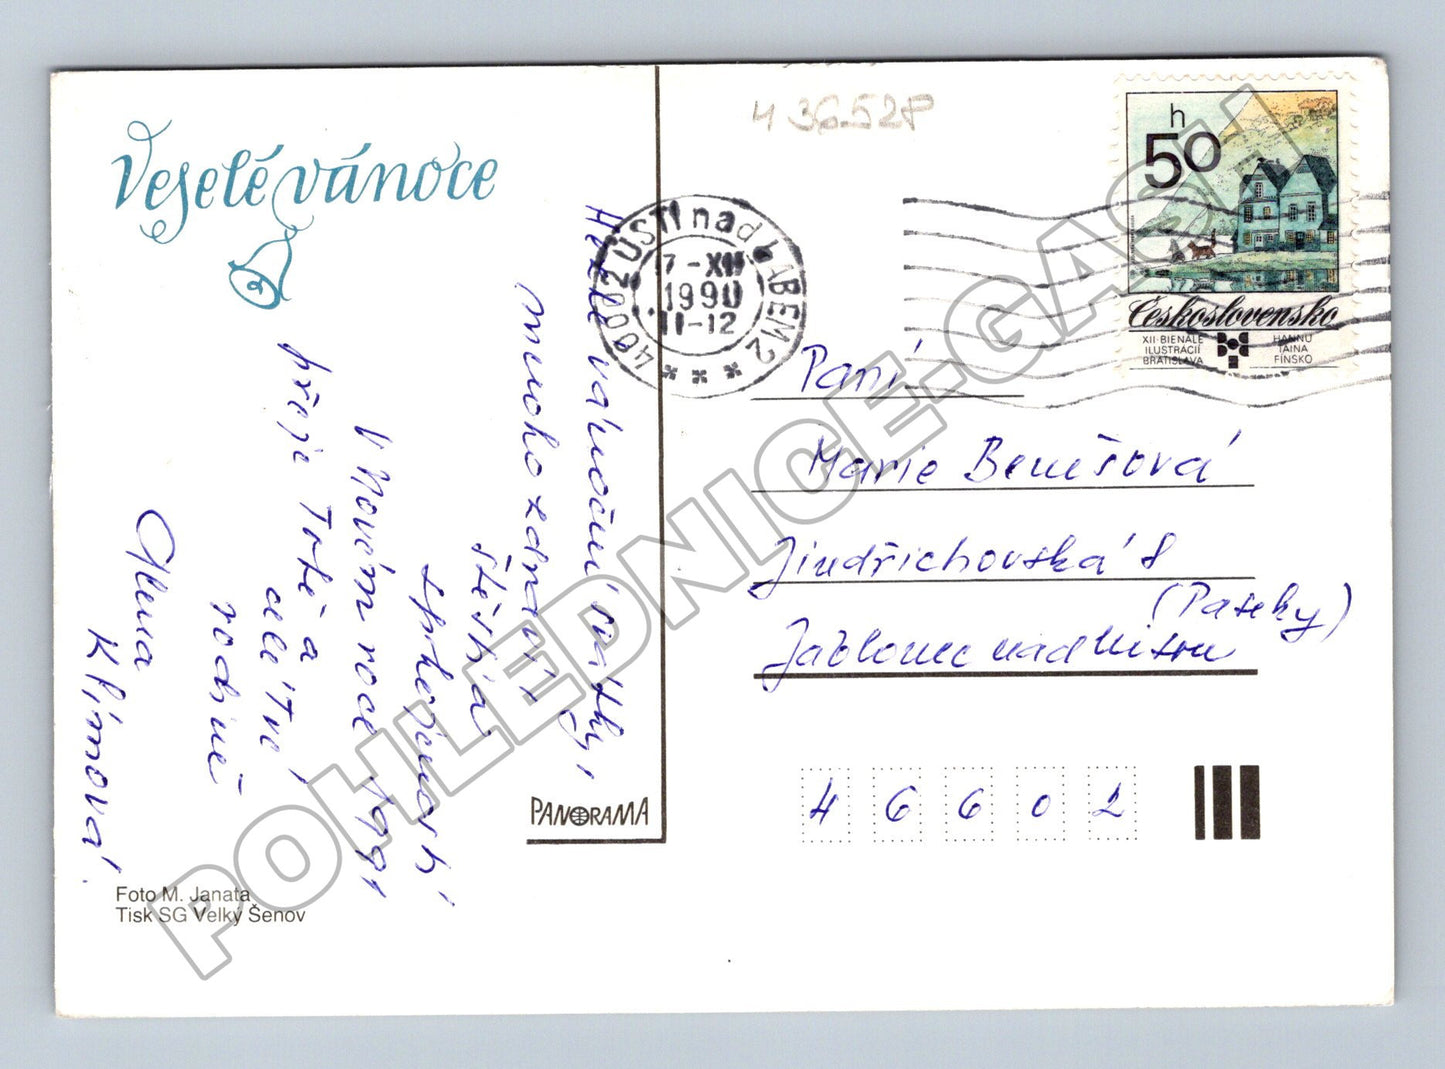 Veselé vánoce
4 36528
Hezké vánoční svátky,
mnoho zdraví
štěstí a
spokojenosti
v Novém roce 1991
přeji Tobě a
celé Tvé
rodině
Alena
Klímová.
Foto M. Janata
Tisk SG Velký Šenov
PANORAMA
400 02 ÚSTÍ nad LABEM 2
7-XII
1990
11-12
h
50
Československo
XII·BIENALE
ILUSTRACIÍ
BRATISLAVA
HANNU
TAINA
FINSKO
Paní
Marie Benešová
Jindřichovská 8
(Paseky)
Jablonec nad Nisou
4 6 6 0 2
POHLEDNICE-GASH